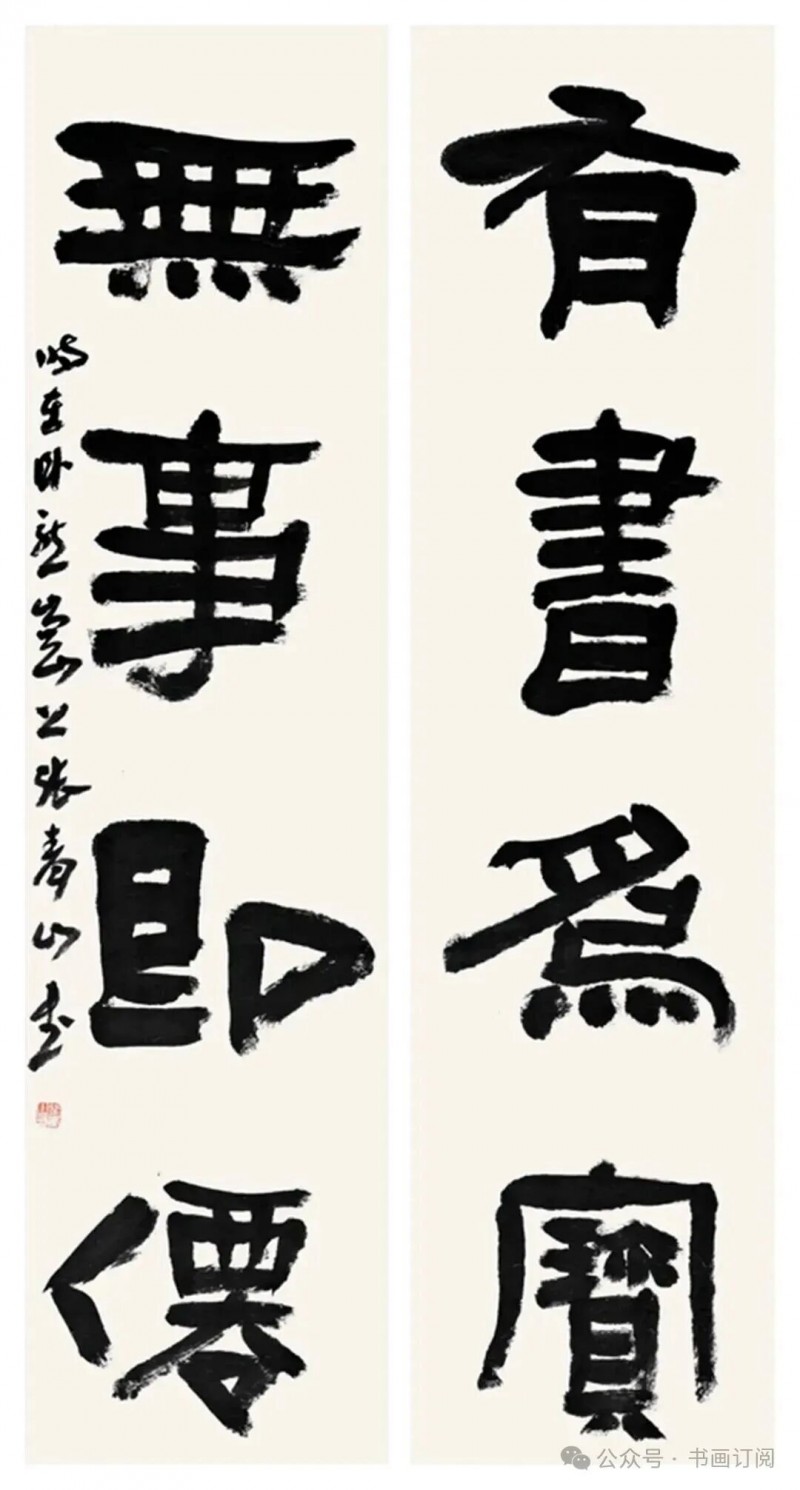 有書為寶
無事即僊
時在卧龍崗上張青山書
公众号 · 书画订阅